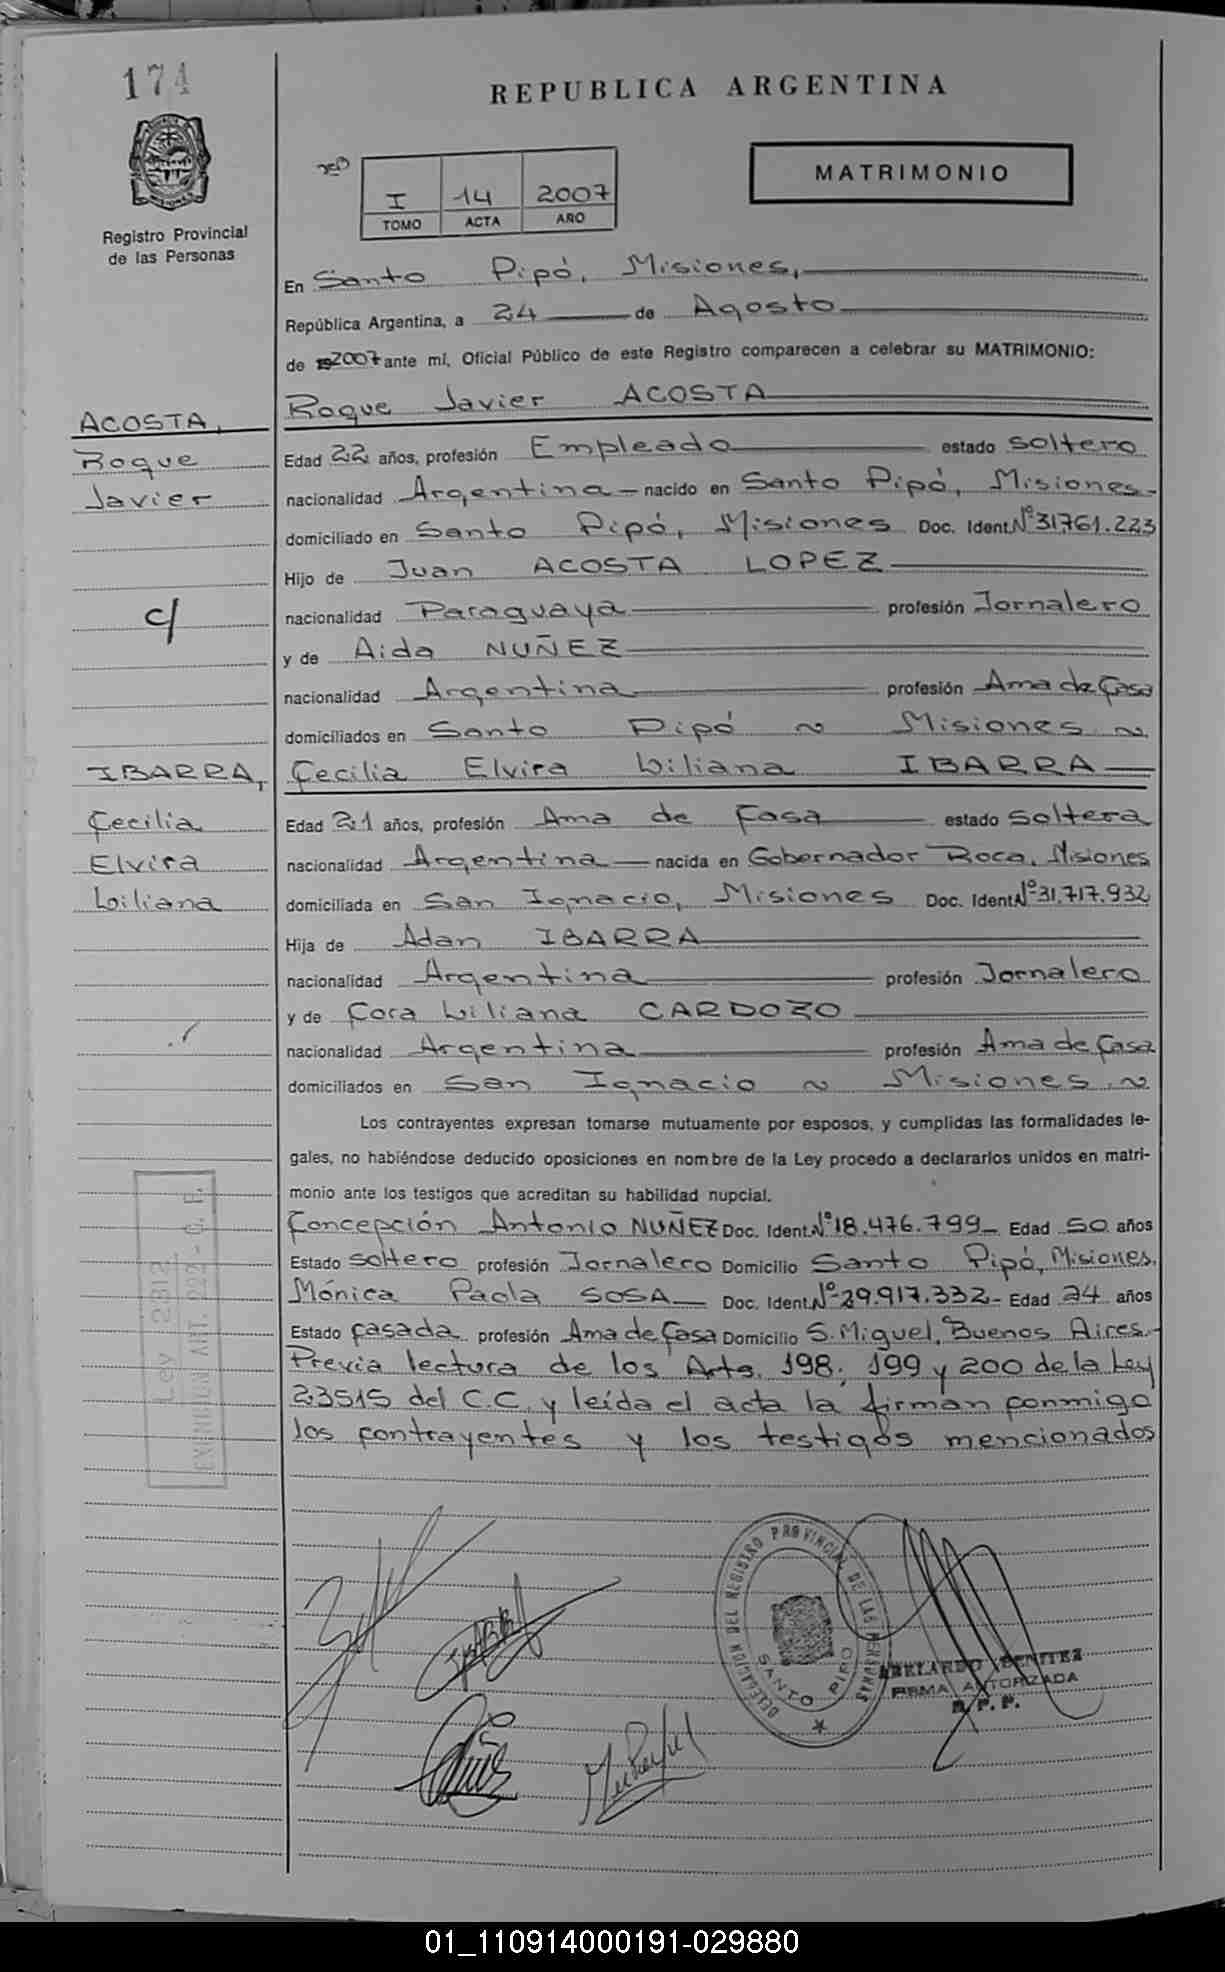 174
REPUBLICA ARGENTINA
MATRIMONIO
I 14 2007
TOMO ACTA AÑO
Registro Provincial
de las Personas
En Santo Pipó, Misiones,
República Argentina, a 24 de Agosto
de 2007 ante mí, Oficial Público de este Registro comparecen a celebrar su MATRIMONIO:
Roque Javier ACOSTA
ACOSTA,
Roque
Javier
Edad 22 años, profesión Empleado estado soltero
nacionalidad Argentina - nacido en Santo Pipó, Misiones-
domiciliado en Santo Pipó, Misiones Doc. Ident. Nº 31.761.223
Hijo de Juan ACOSTA LOPEZ
c/
nacionalidad Paraguaya profesión Jornalero
y de Aida NUÑEZ
nacionalidad Argentina profesión Ama de Casa
domiciliados en Santo Pipó ~ Misiones ~
IBARRA,
Cecilia
Elvira
Liliana
Cecilia Elvira Liliana IBARRA
Edad 21 años, profesión Ama de Casa estado soltera
nacionalidad Argentina - nacida en Gobernador Roca, Misiones
domiciliada en San Ignacio, Misiones Doc. Ident. Nº 31.717.932
Hija de Adan IBARRA
nacionalidad Argentina profesión Jornalero
y de Cora Liliana CARDOZO
nacionalidad Argentina profesión Ama de Casa
domiciliados en San Ignacio ~ Misiones ~
Los contrayentes expresan tomarse mutuamente por esposos, y cumplidas las formalidades le-
gales, no habiéndose deducido oposiciones en nombre de la Ley procedo a declararlos unidos en matri-
monio ante los testigos que acreditan su habilidad nupcial.
Concepción Antonio NUÑEZ Doc. Ident. Nº 18.476.799- Edad 50 años
Estado soltero profesión Jornalero Domicilio Santo Pipó, Misiones.
Mónica Paola SOSA Doc. Ident. Nº 29.917.332- Edad 24 años
Estado casada profesión Ama de Casa Domicilio S. Miguel, Buenos Aires.-
Previa lectura de los Arts. 198, 199 y 200 de la Ley
23515 del C.C. y leída el acta la firman conmigo
los contrayentes y los testigos mencionados
Ley 2312
EXENCION ART. 222 - C. F.
DELEGACION DEL REGISTRO PROVINCIAL DE LAS PERSONAS
SANTO PIPO
ABELARDO BENITEZ
FIRMA AUTORIZADA
01_110914000191-029880